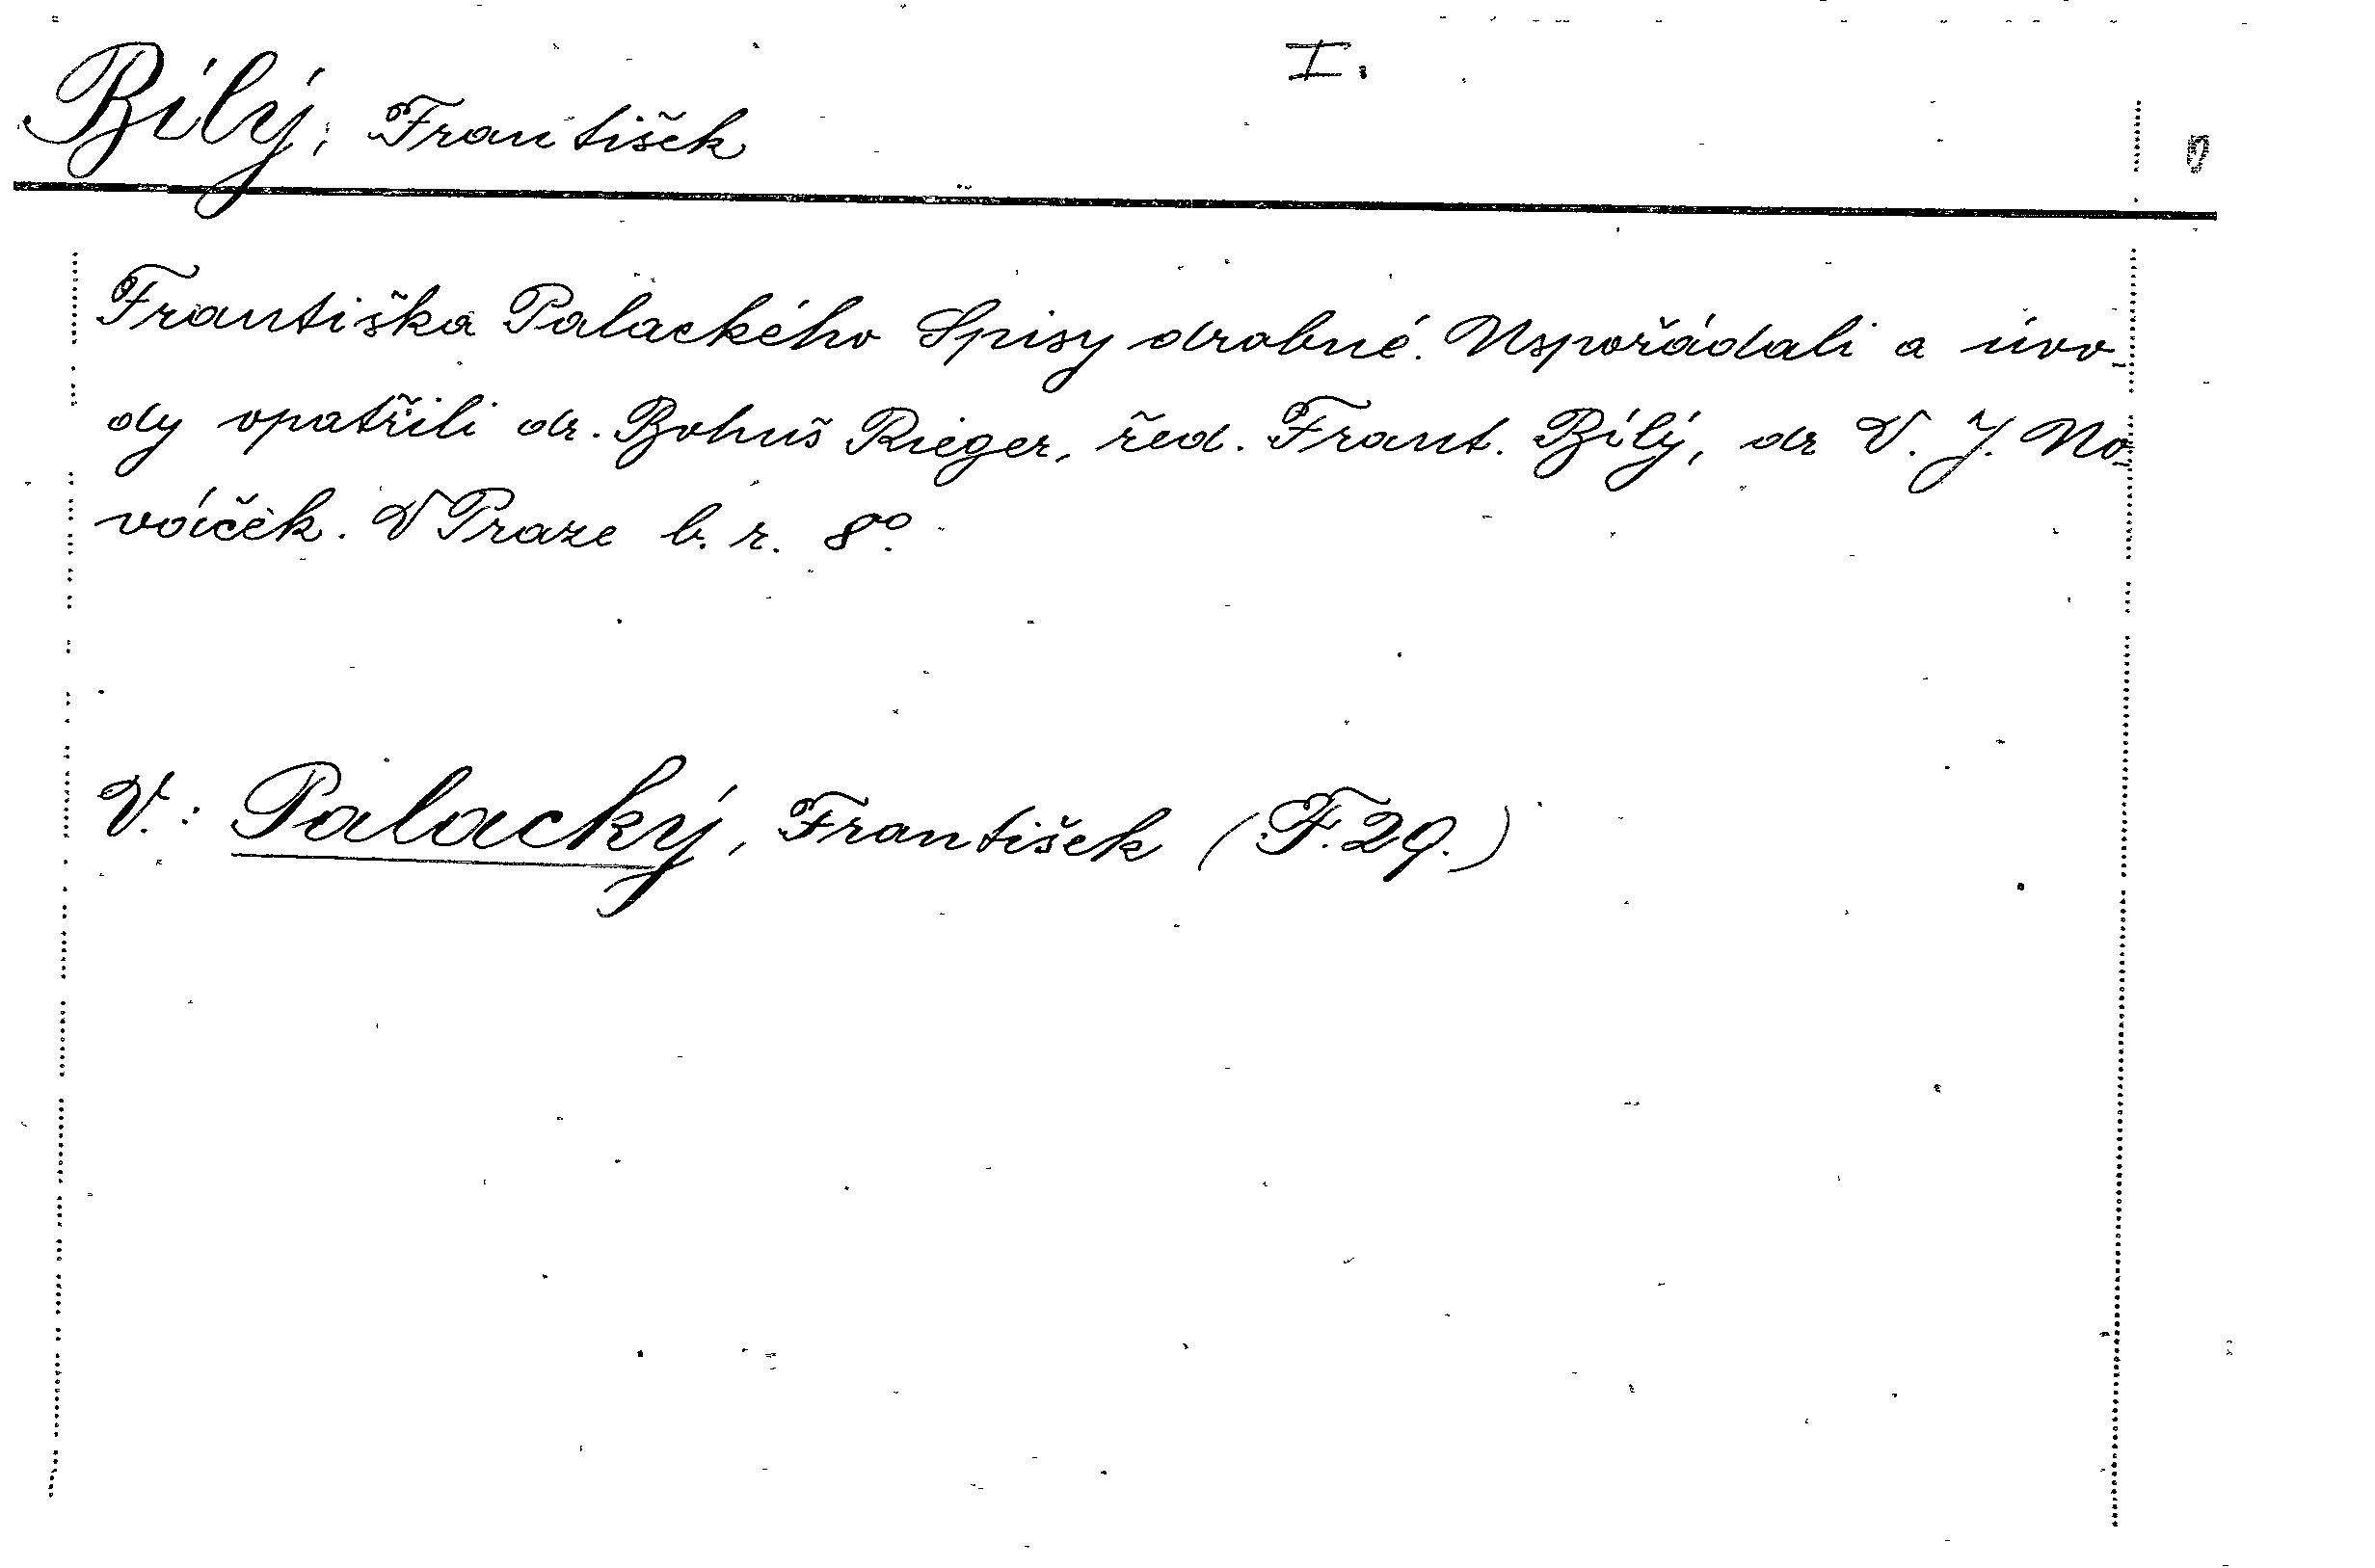 I.
Bílý, František
Františka Palackého Spisy drobné. Uspořádali a úvo-
dy opatřili dr. Bohuš Rieger, řed. Frant. Bílý, dr V. J. No-
váček. V Praze b. r. 8º.
V.: Palacký, František (F. 29.)